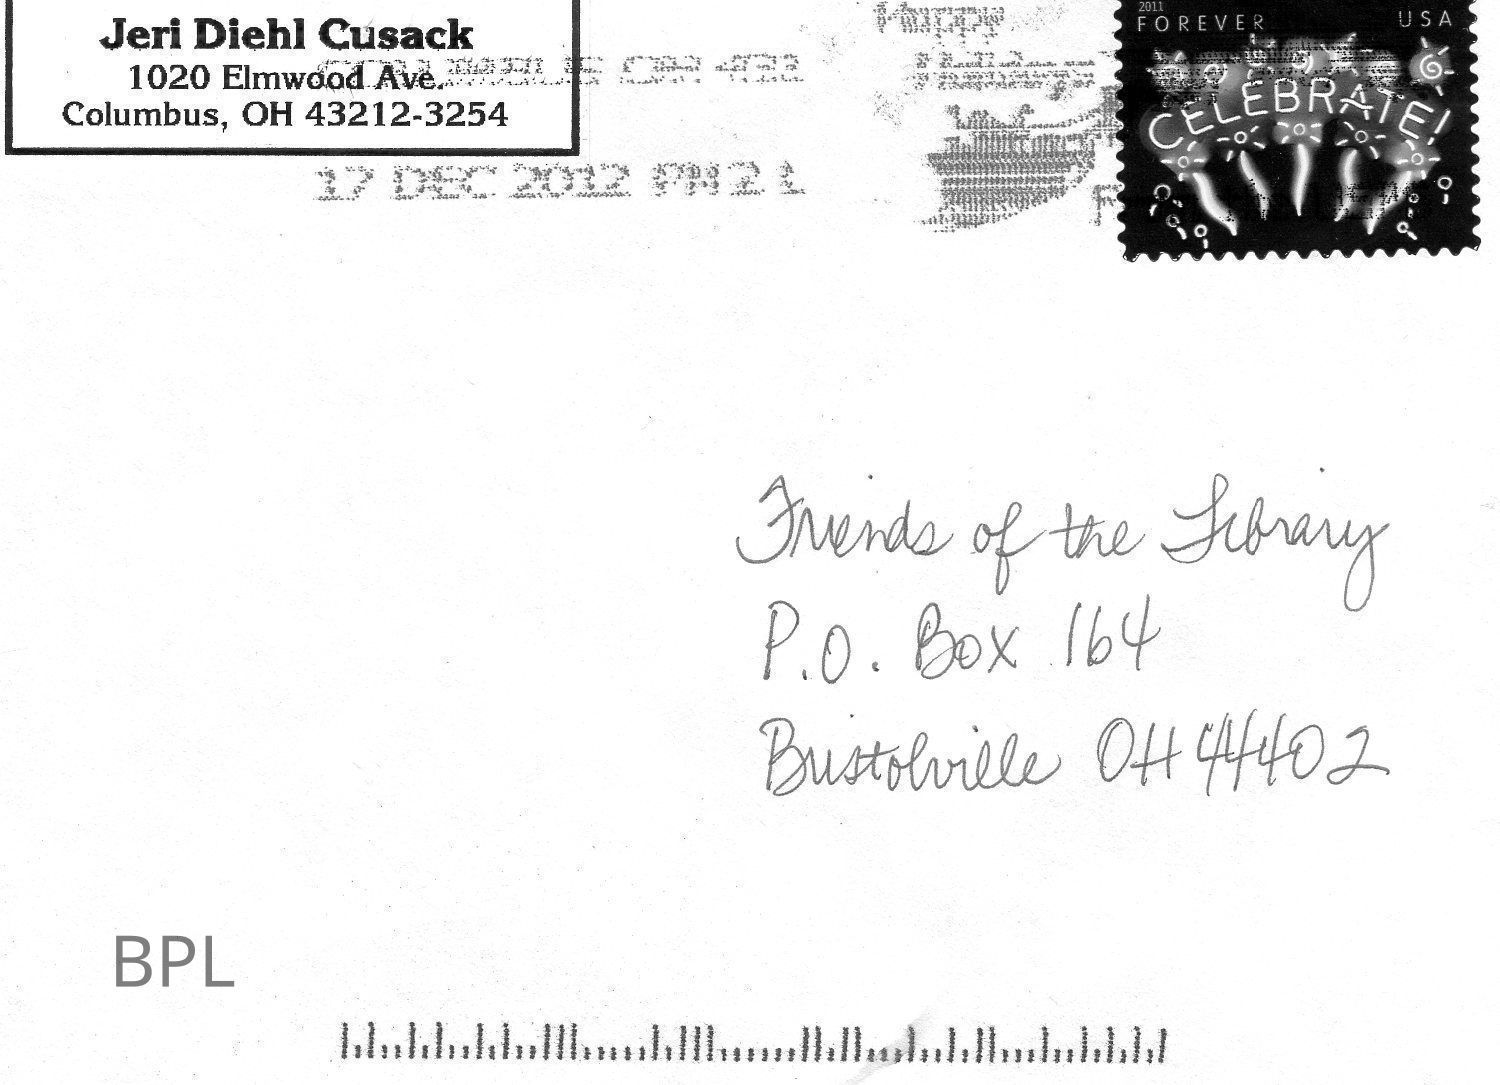 Jeri Diehl Cusack
1020 Elmwood Ave.
Columbus, OH 43212-3254
COLUMBUS OH 432
17 DEC 2012 PM 2 L
Happy
2011
FOREVER USA
CELEBRATE!
Friends of the Library
P.O. Box 164
Bristolville OH 44402
BPL